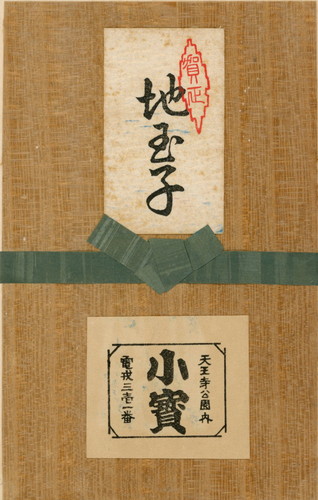 賀正
地玉子
天王寺公園内
小寶
電戎三壱一番